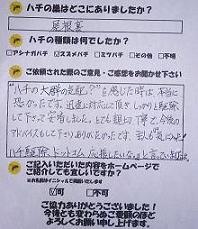 ハチの巣はどこにありましたか?
屋根裏
ハチの種類は何でしたか?
□アシナガバチ ☑スズメバチ □ミツバチ □その他 □不明
ご依頼された際のご意見・ご感想をお聞かせ下さい
"ハチの大群の
を感じた時は 本当に
恐かったです。迅速に対応して頂き しっかり駆除
して下さって
ました。とても親切 丁寧と今後の
アドバイスもして下さりありがとうです
ハチ駆除ドットコム 広報したいな。と言って
ご記入いただいた内容をホームページで
ご紹介しても宜しいですか?
☑可 □不可
ご協力ありがとうございました!
今後とも変わらぬご愛顧のほど
よろしくお願い申し上げます。